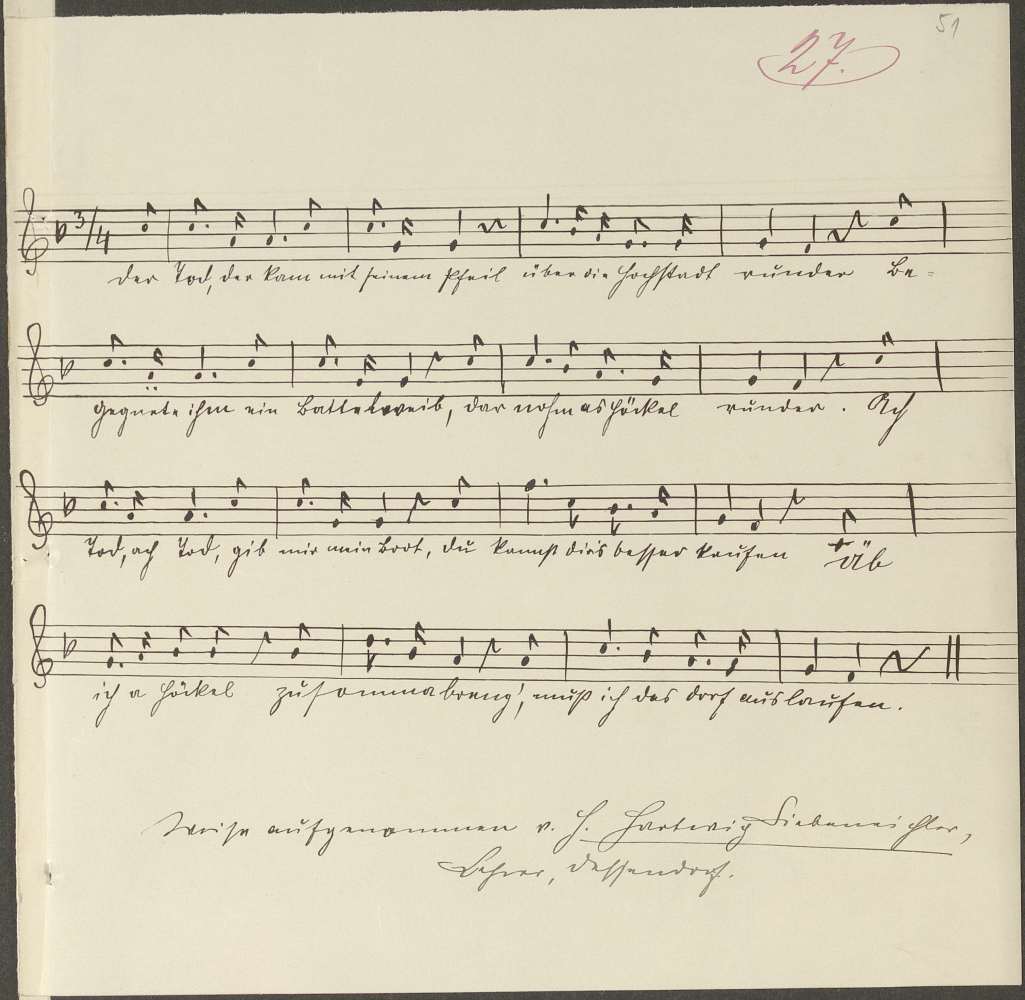 51
27.
3/4
der Tod, der kam mit seinem Pfeil über die Hochstadt runder Be-
gegnete ihm ein Battelweib, dar nohm as Höckel runder. Ach
Tod, ach Tod, gib mir mein Brot, du kannst dir's besser kaufen
äb
ich a Höckel zusommabreng', muß ich das dorf auslaufen.
Weise aufgenommen v. H. Hartwig Siebeneichler,
Lehrer, Dessendorf.